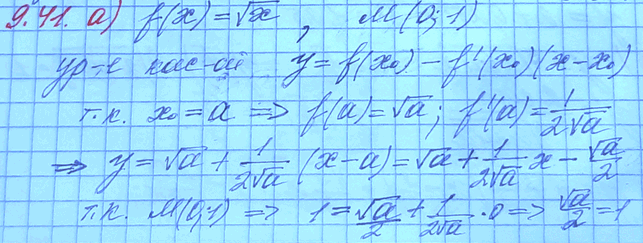 9.41. а) f(x) = √x , М(0; 1)
ур-е кас-ой y = f(x₀) - f'(x₀)(x-x₀)
т.к. x₀ = a ⇒ f(a) = √a ; f'(a) = 1/(2√a)
⇒ y = √a + 1/(2√a) (x-a) = √a + 1/(2√a) x - √a/2
т.к. М(0;1) ⇒ 1 = √a/2 + 1/(2√a) · 0 ⇒ √a/2 = 1